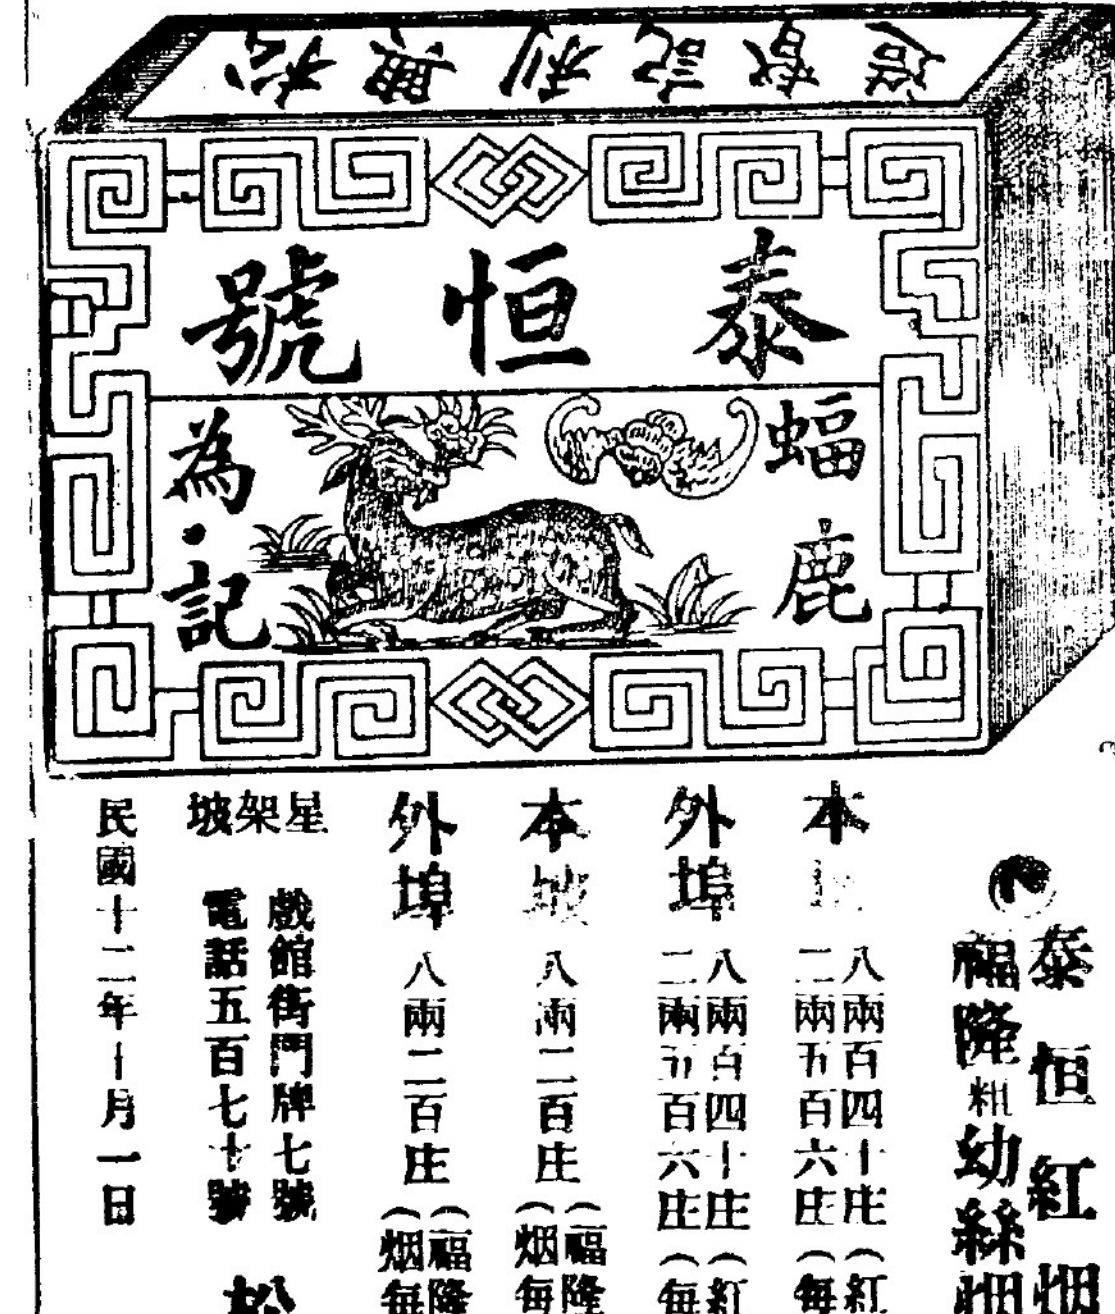 泰恒號
蝠鹿
為・記
泰恒紅烟
福隆粗幼絲烟
本
八兩百四十庄（紅
二兩五百六庄（每
外埠
八兩百四十庄（紅
二兩五百六庄（每
本坡
八兩二百庄（福隆
（烟每
外埠
八兩二百庄（福隆
（烟每
星架坡
戲館街門牌七號
電話五百七十號
松
民國十二年十月一日